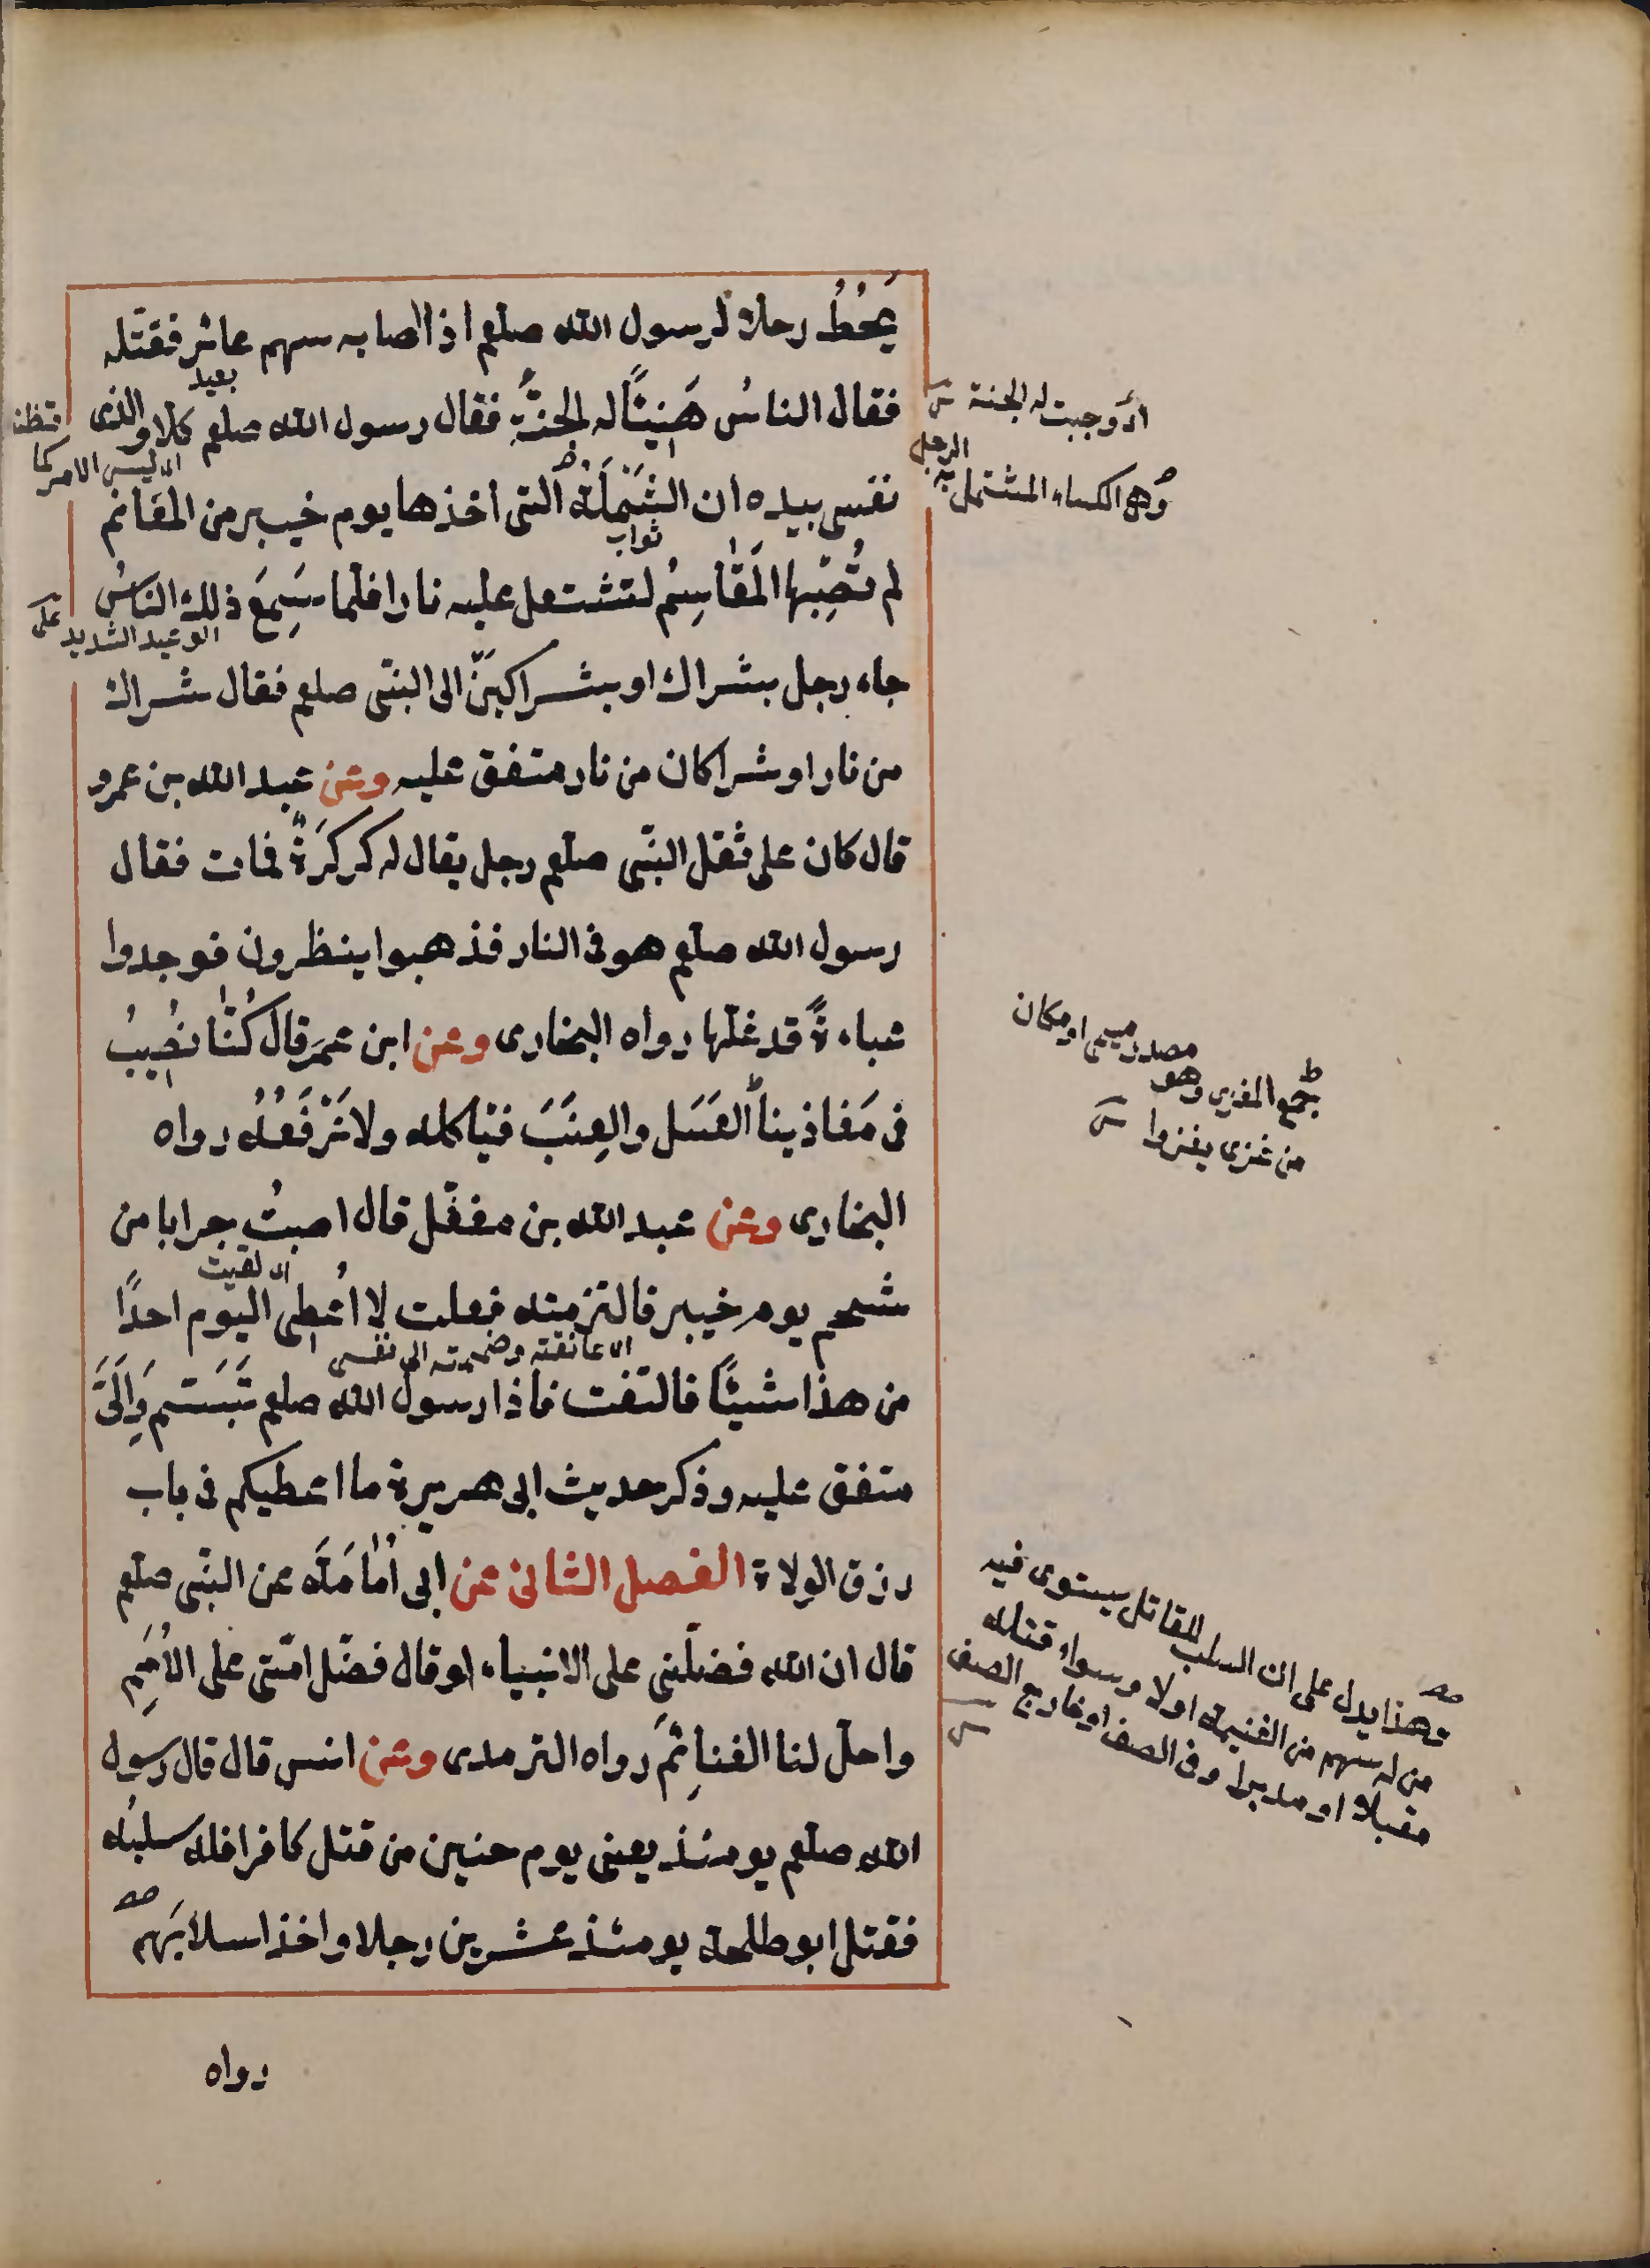 يَحُطُّ رحلا لرسول الله صلعم اذ اصابه سهم عائر فقتله
فقال الناسُ هَنِيئًا له الجنةُ فقال رسول الله صلعم كلا والذى
نفسى بيده ان الشَمْلَةَ التى اخذها يوم خيبر من المغَانم
لم تُصِبْها المَقَاسِمُ لتشتعل عليه نارا فلما سَمِعَ ذلك الناسُ
جاء رجل بشراك او بشراكَيْنِ الى النبى صلعم فقال شراك
من نار او شراكان من نار متفق عليه وعن عبد الله بن عمرو
قال كان على ثقل النبى صلعم رجل يقال له كركَرَةُ فمات فقال
رسول الله صلعم هو فى النار فذهبوا ينظرون فوجدوا
عباءةً قد غلّها رواه البخارى وعن ابن عمَر قال كُنّا نُصِيبُ
فى مَغازينا العَسَل والعِنَبَ فنأكله ولا نَرْفَعُهُ رواه
البخارى وعن عبد الله بن مغفّل قال اصبتُ جرابا من
شحم يوم خيبر فالتزمته فقلت لا اُعطى اليوم احدًا
من هذا شيئًا فالتفت فاذا رسول الله صلعم تَبَسّم اِلَىَّ
متفق عليه وذكر حديث ابى هريرة ما اعطيكم فى باب
رزق الولاة الفصل الثانى عن ابى اُمَامَةَ عن النبى صلعم
قال ان الله فضلنى على الانبياء او قال فضّل امّتى على الاُمَمِ
واحلّ لنا الغنائِمَ رواه الترمدى وعن انس قال قال رسول
الله صلعم يومئذ يعنى يوم حنين من قتل كافرا فله سلبُه
فقتل ابو طلحة يومئذ عشرين رجلا واخذ اسلابَهم
رواه
بعيد
اى ليس الامر كما
تظن
ثواب
الوعيد الشديد
اى لقيت
اى عانقته وضممته الى نفسى
اى وجبت له الجنة
وهى الكساء المشتمل به
الرجل
جمع المغزى وهو
مصدر ميمى او مكان
من غزى يغزوا
وهذا يدل على ان السلب للقاتل يستوى فيه
من له سهم من الغنيمة اولا وسواء قتله
مقبلا او مدبرا وفى الصف او خارج الصف